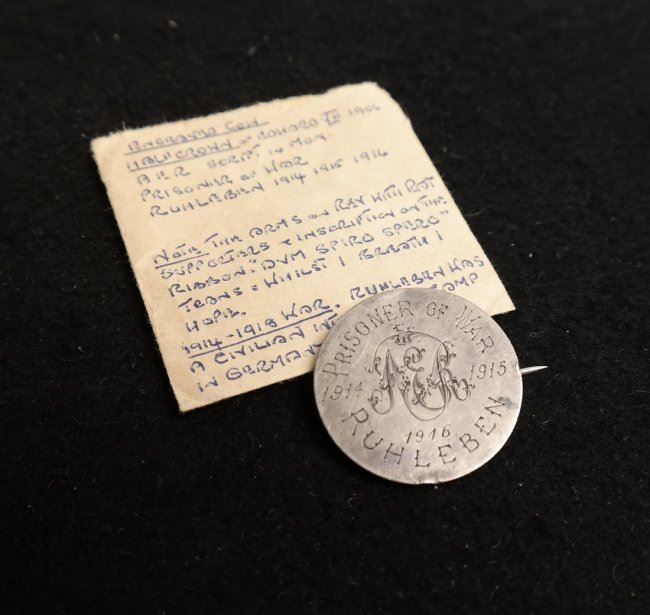 ENGRAVED COIN
HALFCROWN OF EDWARD VII 1906
A E R SCRIPT IN MON.
PRISONER OF WAR
RUHLEBEN 1914 1915 1916
NOTE THE ARMS ON REV WITH ROT
SUPPORTERS & INSCRIPTION ON THE
RIBBON: "DUM SPIRO SPERO"
TRANS = WHILST I BREATH I
HOPE.
1914-1918 WAR. RUHLEBEN WAS
A CIVILIAN INT CAMP
IN GERMAN
PRISONER OF WAR
AER
1914 1915
1916
RUHLEBEN